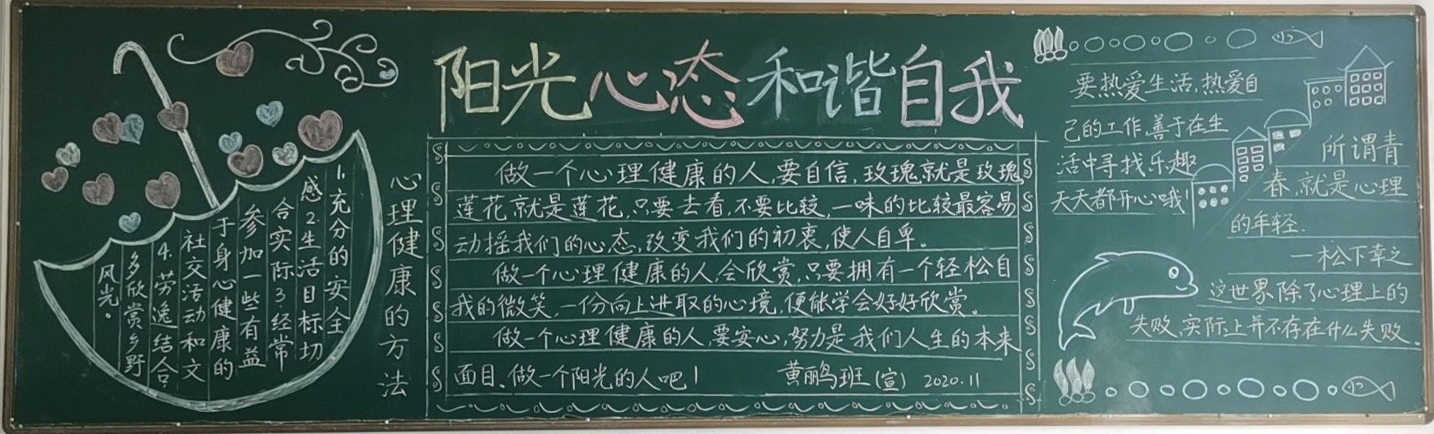 阳光心态 和谐自我
心理健康的方法
1.充分的安全
感2生活目标切
合实际3.经常
参加一些有益
于身心健康的
社交活动和文
4.劳逸结合
多欣赏乡野
风光。
做一个心理健康的人,要自信,玫瑰就是玫瑰
莲花就是莲花,只要去看,不要比较,一味的比较最容易
动摇我们的心态,改变我们的初衷,使人自卑。
做一个心理健康的人,会欣赏,只要拥有一个轻松自
我的微笑,一份向上进取的心境,便能学会好好欣赏。
做一个心理健康的人,要安心,努力是我们人生的本来
面目、做一个阳光的人吧!
黄丽鸣班(宣) 2020.11
要热爱生活,热爱自
己的工作,善于在生
活中寻找乐趣
天天都开心哦!
所谓青
春,就是心理
的年轻.
一松下幸之
这世界除了心理上的
失败,实际上并不存在什么失败.